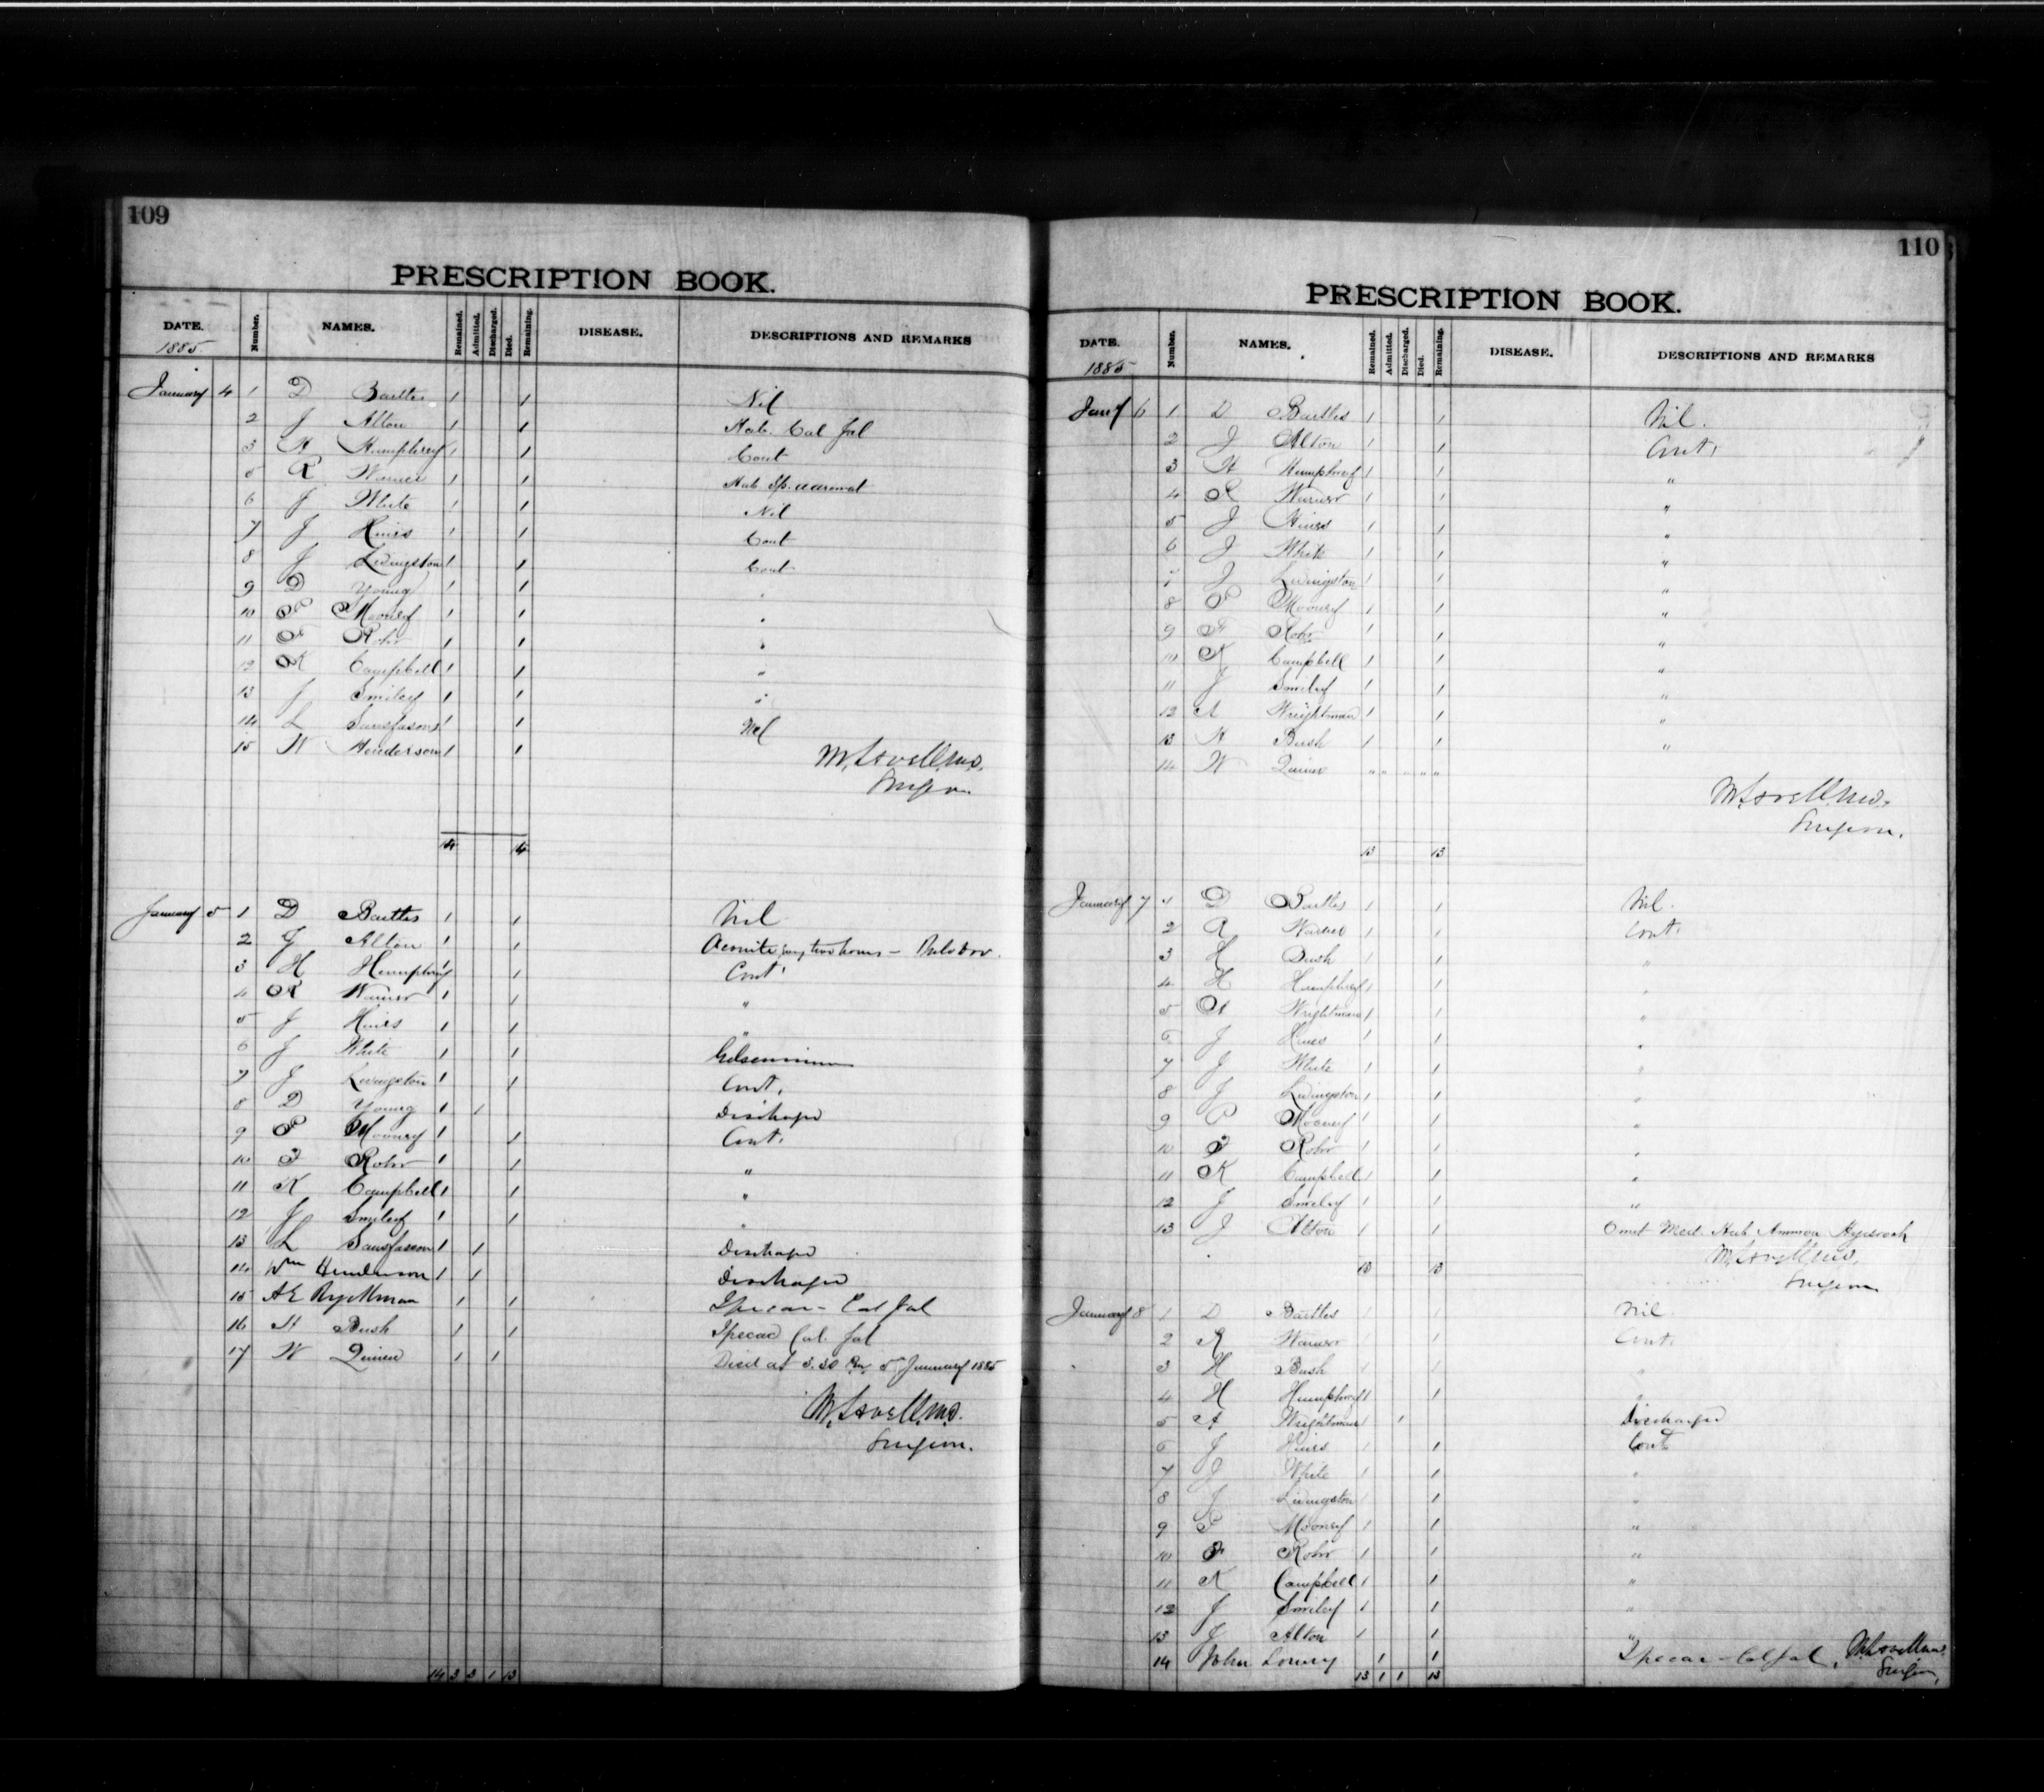 109
PRESCRIPTION BOOK.
DATE. Number. NAMES. Remained. Admitted. Discharged. Died. Remaining. DISEASE. DESCRIPTIONS AND REMARKS
1885
January 4 1 D Bartles 1 1 Nil
2 J Alton 1 1 Hab. Cal Jal
3 H Humphrey 1 1 Cont
5 R Warner 1 1 Hab Sp.
6 J White 1 1 Nil
7 J Hines 1 1 Cont
8 J Livingston 1 1 Cont
9 D Young 1 1 "
10 P Mooney 1 1 "
11 F Rohr 1 1 "
12 K Campbell 1 1 "
13 J Smiley 1 1 "
14 L Sansfason 1 1 Nil
15 W Henderson 1 1
M. Lavell M.D.
Surgeon
14 14
January 5 1 D Bartles 1 1 Nil
2 J Alton 1 1 Aconite two hours –
3 H Humphrey 1 1 Cont
4 R Warner 1 1 "
5 J Hines 1 1 "
6 J White 1 1 Gelseminum
7 J Livingston 1 1 Cont.
8 D Young 1 1 Discharged
9 P Mooney 1 1 Cont.
10 F Rohr 1 1 "
11 K Campbell 1 1 "
12 J Smiley 1 1 "
13 L Sansfason 1 1 Discharged
14 Wm Henderson 1 1 Discharged
15 A E Ryckman 1 1 Ipecac – Cal Jal
16 H Bush 1 1 Ipecac Cal. Jal
17 W Quinn 1 1 Died at 3.30 Pm 5 January 1885
M. Lavell M.D.
Surgeon.
14 3 3 1 13
110
PRESCRIPTION BOOK.
DATE. Number. NAMES. Remained. Admitted. Discharged. Died. Remaining. DISEASE. DESCRIPTIONS AND REMARKS
1885
Jany 6 1 D Bartles 1 1 Nil.
2 J Alton 1 1 Cont.
3 H Humphrey 1 1 "
4 R Warner 1 1 "
5 J Hines 1 1 "
6 J White 1 1 "
7 J Livingston 1 1 "
8 P Mooney 1 1 "
9 F Rohr 1 1 "
10 K Campbell 1 1 "
11 J Smiley 1 1 "
12 A Wrightman 1 1 "
13 H Bush 1 1 "
14 W Quinn " " " " "
M. Lavell M.D.
Surgeon.
13 13
January 7 1 D Bartles 1 1 Nil.
2 R Warner 1 1 Cont.
3 H Bush 1 1 "
4 H Humphrey 1 1 "
5 A Wrightman 1 1 "
6 J Hines 1 1 "
7 J White 1 1 "
8 J Livingston 1 1 "
9 P Mooney 1 1 "
10 F Rohr 1 1 "
11 K Campbell 1 1 "
12 J Smiley 1 1 "
13 J Alton 1 1 Omit Med. Hab Ammon
M. Lavell M.D.
13 13
Surgeon
January 8 1 D Bartles 1 1 Nil
2 R Warner 1 1 Cont.
3 H Bush 1 1 "
4 H Humphrey 1 1 "
5 A Wrightman 1 1 Discharged
6 J Hines 1 1 Cont
7 J White 1 1 "
8 J Livingston 1 1 "
9 P Mooney 1 1 "
10 F Rohr 1 1 "
11 K Campbell 1 1 "
12 J Smiley 1 1 "
13 J Alton 1 1 "
14 John Lowry 1 1 Ipecac – Cal Jal. M. Lavell M.D.
13 1 1 13 Surgeon.